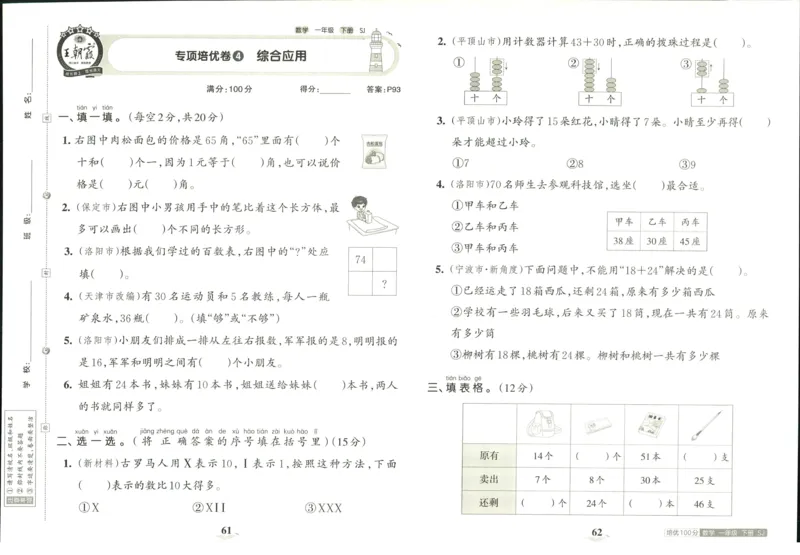 数学 一年级 下册 SJ
王朝霞
专项培优卷4 综合应用
满分:100分 得分:________ 答案:P93
姓名:
班级:
学校:
tián yi tián
一、填一填。(每空2分,共20分)
1. 右图中肉松面包的价格是65角,“65”里面有( )个
十和( )个一,因为1元等于( )角,也可以说价
格是( )元( )角。
2. (保定市)右图中小男孩用手中的笔比着这个长方体,最
多可以画出( )个不同的长方形。
3. (洛阳市)根据我们学过的百数表,右图中的“?”处应
填( )。
74
?
4. (天津市改编)有30名运动员和5名教练,每人一瓶
矿泉水,36瓶( )。(填“够”或“不够”)
5. (洛阳市)小朋友们排成一排从左往右报数,军军报的是8,明明报的
是16,军军和明明之间有( )个小朋友。
6. 姐姐有24本书,妹妹有10本书,姐姐送给妹妹( )本书,两人
的书就同样多了。
xuǎn yi xuǎn jiāng zhèng què dá àn de xù hào tián zài kuò hào lǐ
二、选一选。(将正确答案的序号填在括号里)(15分)
1. (新材料)古罗马人用X表示10,I表示1,按照这种方法,下面
( )表示的数比10大得多。
①X ②XII ③XXX
61
2. (平顶山市)用计数器计算43+30时,正确的拨珠过程是( )。
① ② ③
十 个 十 个 十 个
3. (平顶山市)小玲得了15朵红花,小晴得了7朵。小晴至少再得( )
朵才能超过小玲。
①7 ②8 ③9
4. (洛阳市)70名师生去参观科技馆,选坐( )最合适。
①甲车和乙车
②乙车和丙车
③甲车和丙车
甲车 乙车 丙车
38座 30座 45座
5. (宁波市·新角度)下面问题中,不能用“18+24”解决的是( )。
①已经运走了18箱西瓜,还剩24箱,原来有多少箱西瓜
②学校有一些羽毛球,后来又买了18筒,现在一共有24筒。原来
有多少筒
③柳树有18棵,桃树有24棵。柳树和桃树一共有多少棵
tián biǎo gé
三、填表格。(12分)
原有 14个 ( )个 51本 ( )支
卖出 7个 8个 30本 25支
还剩 ( )个 24个 ( )本 46支
62
培优100分 数学 一年级 下册 SJ